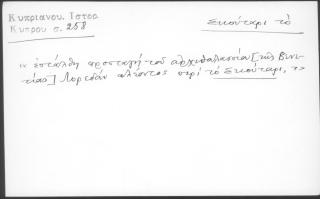 Κυπριανου. Ιστορ.
Κυπρου σ. 258
Σκούταρι τὸ
« ἐστάλθη προσταγὴ τοῦ ἀρχιθαλασσία [τῆς Βενε-
τίας] Λορεδὰν πλέοντος περὶ τὸ Σκούταρι, »